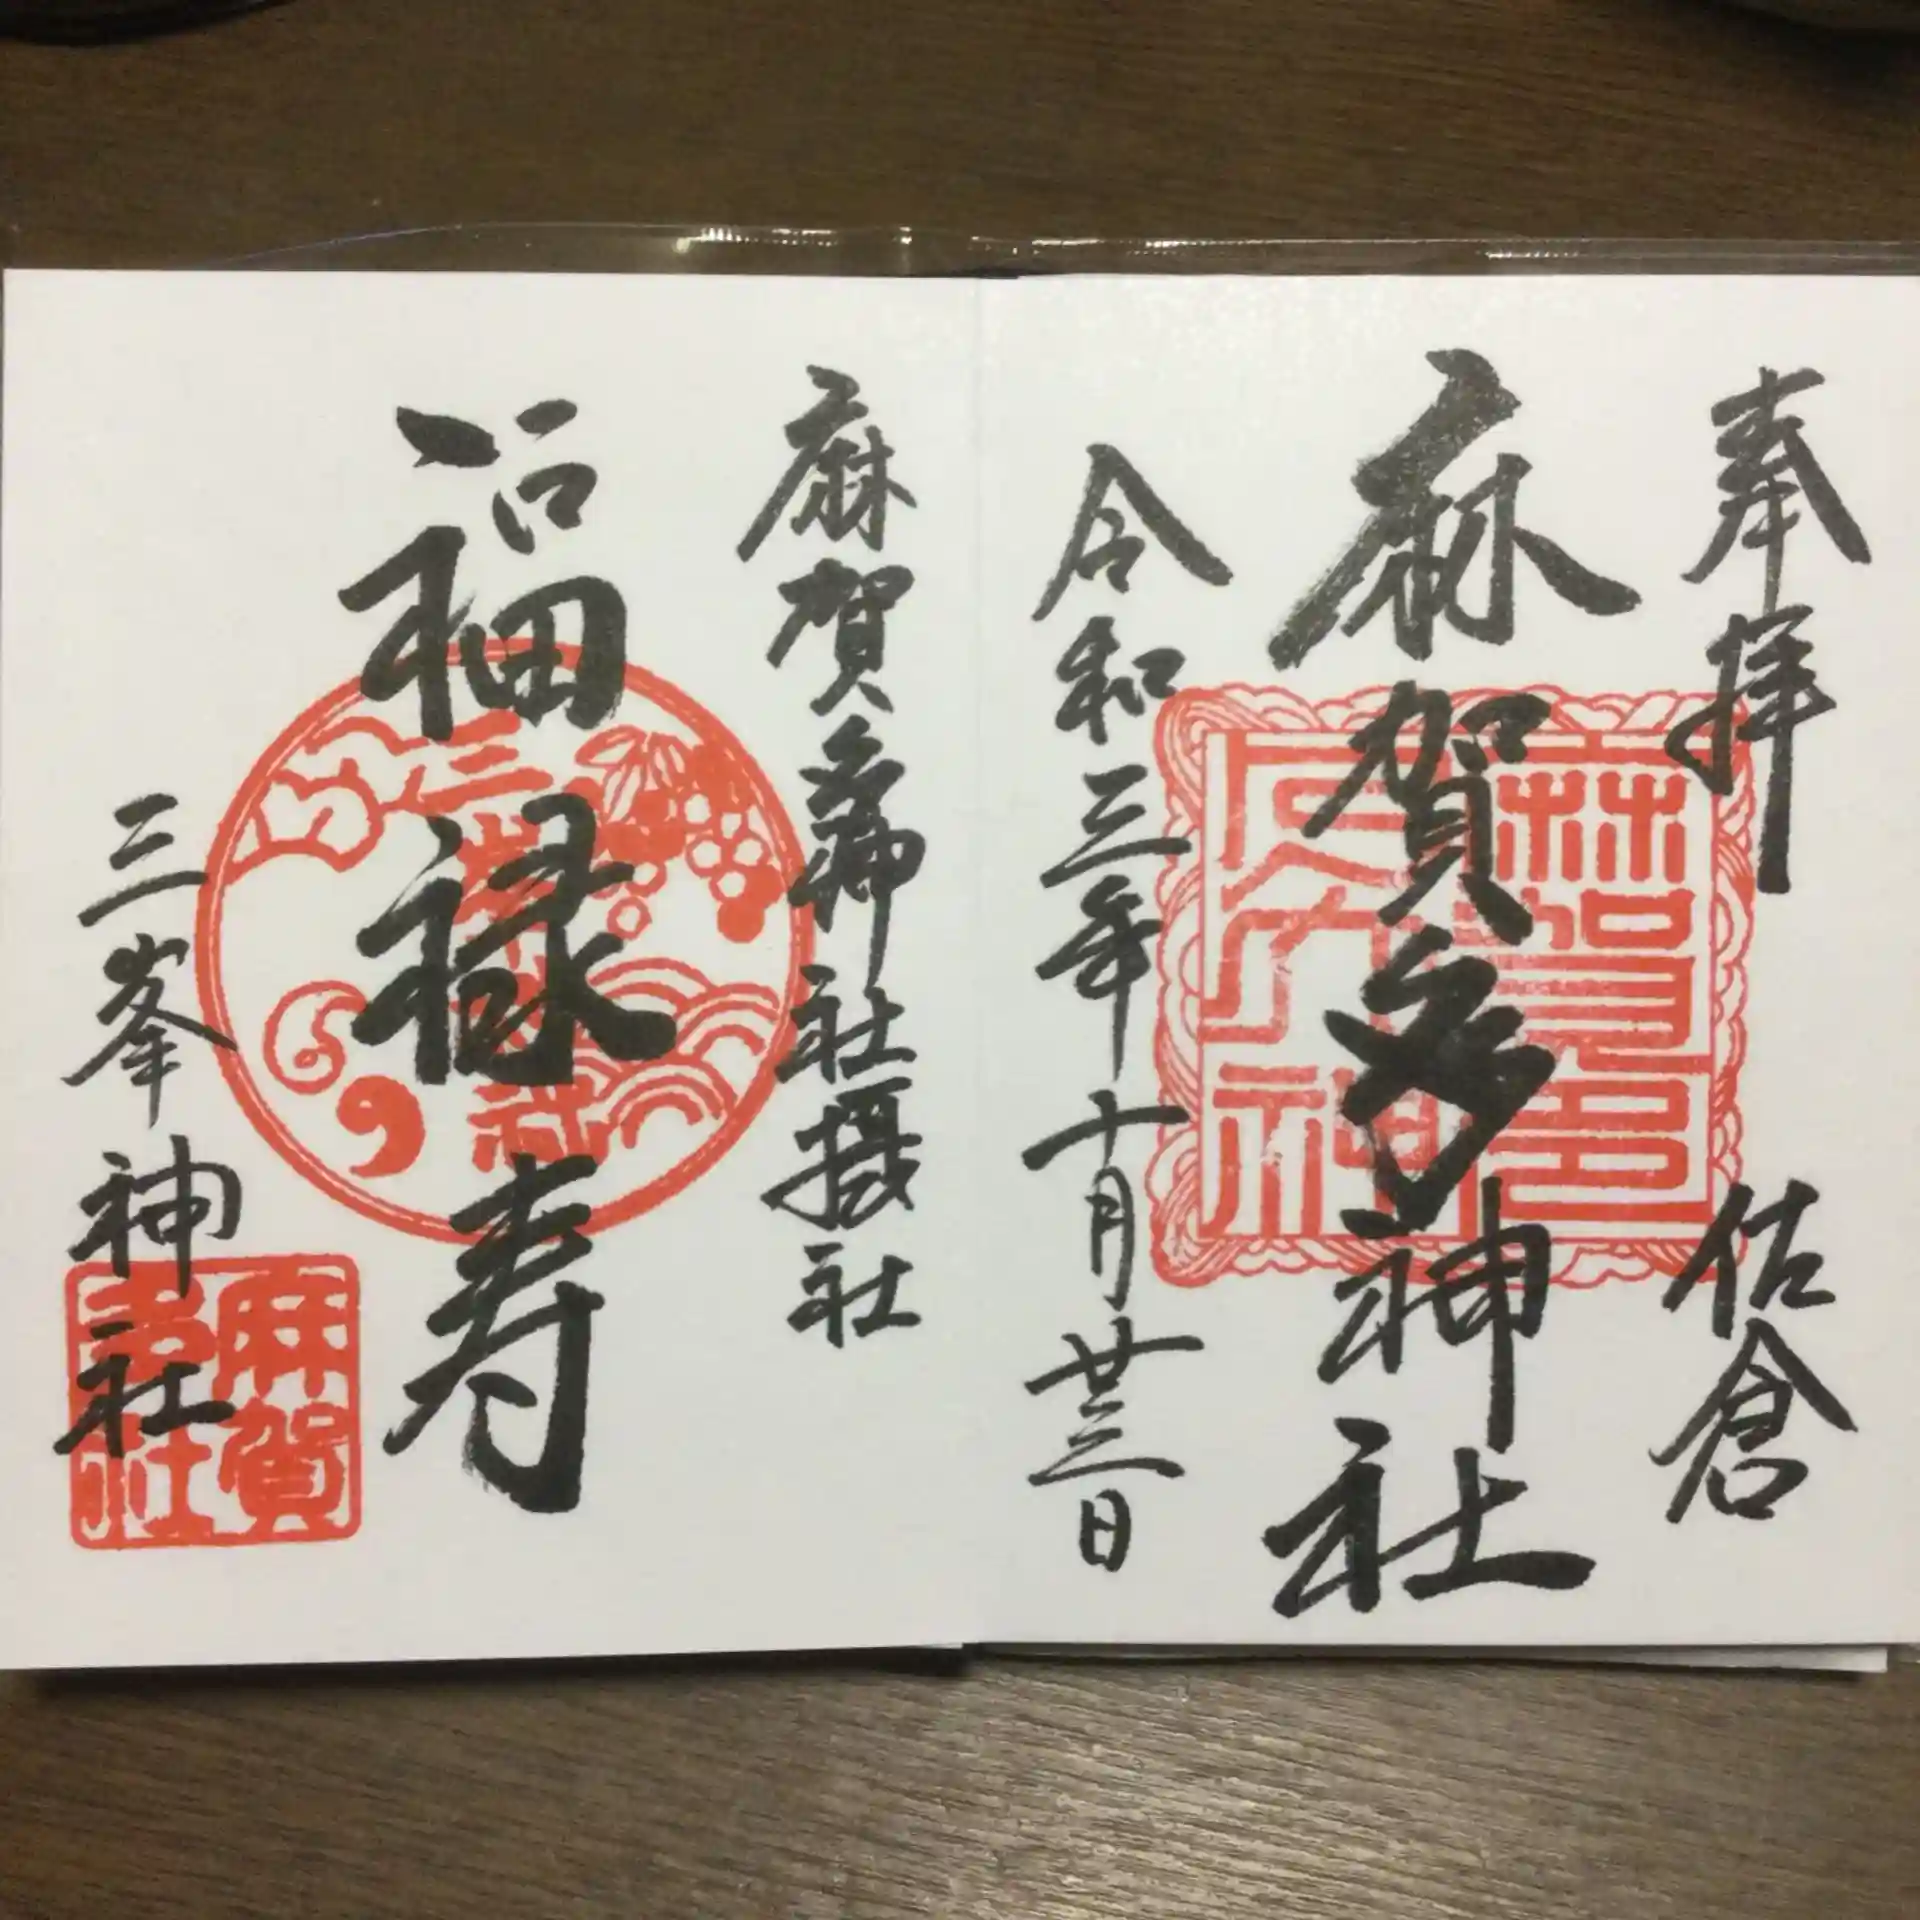 奉拝
佐倉
麻賀多神社
令和三年十月廿三日
麻賀多神社摂社
福禄寿
三峯神社
麻賀多社